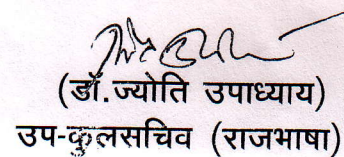 (डॉ.ज्योति उपाध्याय)
उप-कुलसचिव (राजभाषा)